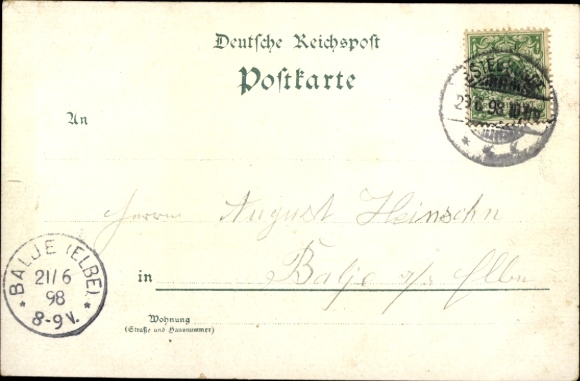 Deutsche Reichspost
Postkarte
An
98
Herrn August Heinsohn
BALJE (ELBE)
21/6
98
8-9 V.
in Balje a/s Elbe
Wohnung
(Straße und Hausnummer)